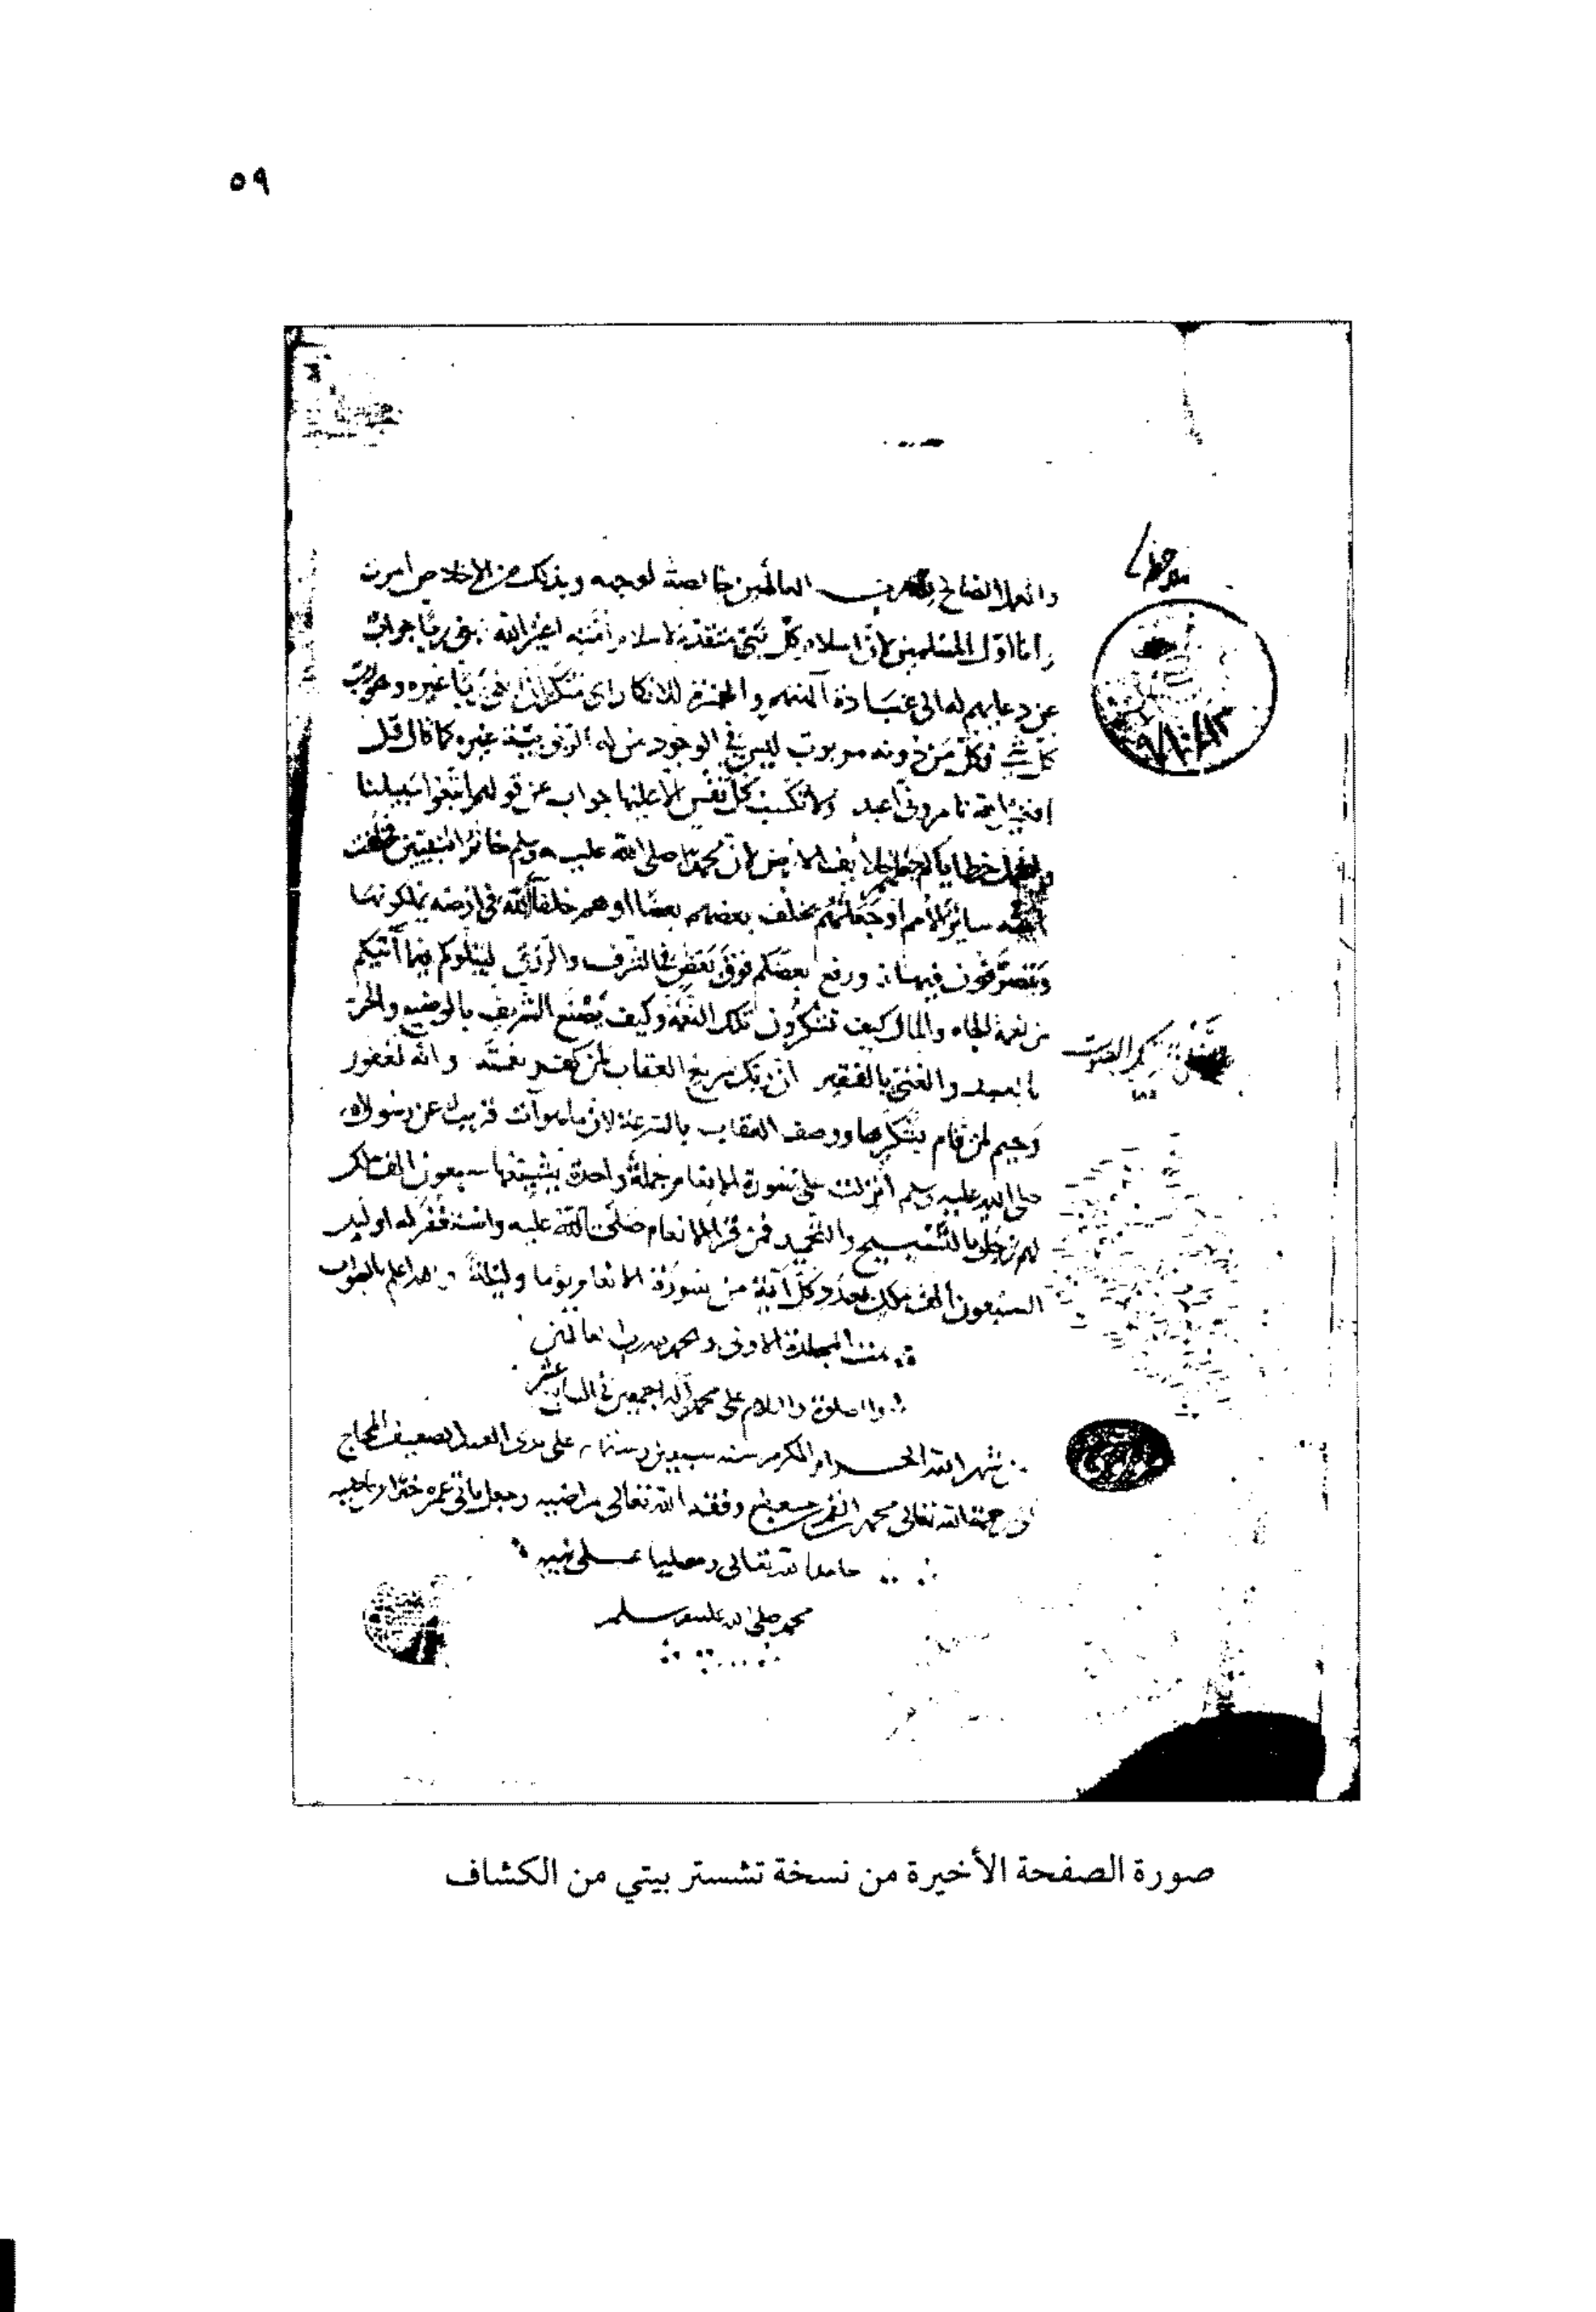 ٥٩
والعمل الصالح لله رب العالمين خالصة لوجهه وبذلك من الإخلاص امرت
وانا اول المسلمين لان اسلام كل نبي متقدم لاسلام امته اغير الله ابغي ربا جواب
عن دعائهم له الى عبادة آلهتهم والهمزة للانكار اي منكر ان ابغي ربا غيره وهو رب
كل شيء فكل من دونه مربوب ليس في الوجود من له الربوبية غيره كما قال قل
افغير الله تامروني اعبد ولا تكسب كل نفس الا عليها جواب عن قولهم اتبعوا سبيلنا
ولنحمل خطاياكم جعلكم خلايف الارض لان محمدا صلى الله عليه وسلم خاتم النبيين فخلفت
امته سائر الامم او جعلهم يخلف بعضهم بعضا او هم خلفاء الله في ارضه يملكونها
ويتصرفون فيها ورفع بعضكم فوق بعض في الشرف والرزق ليبلوكم فيما آتيكم
من نعمة الجاه والمال كيف تشكرون تلك النعمة وكيف يصنع الشريف بالوضيع والحر
بالعبد والغني بالفقير ان ربك سريع العقاب لمن كفر نعمته وانه لغفور
رحيم لمن قام بشكرها ووصف العقاب بالسرعة لان ما هو آت قريب عن رسول الله
صلى الله عليه وسلم انزلت علي سورة الانعام جملة واحدة يشيعها سبعون الف ملك
لهم زجل بالتسبيح والتحميد فمن قرأ الانعام صلى الله عليه واستغفر له اوليك
السبعون الف ملك بعدد كل آية من سورة الانعام يوما وليلة والله اعلم بالصواب
تمت المجلدة الاولى والحمد لله رب العالمين
والصلوة والسلام على محمد وآله اجمعين في
من شهر الله الحرام المكرم سنه على يدي العبد الضعيف المحتاج
الى رحمة الله تعالى محمد وفقه الله تعالى مراضيه وجعل باقي عمره خيرا من ماضيه
حامدا لله تعالى ومصليا على نبيه
محمد صلى الله عليه وسلم
صورة الصفحة الأخيرة من نسخة تشستر بيتي من الكشاف